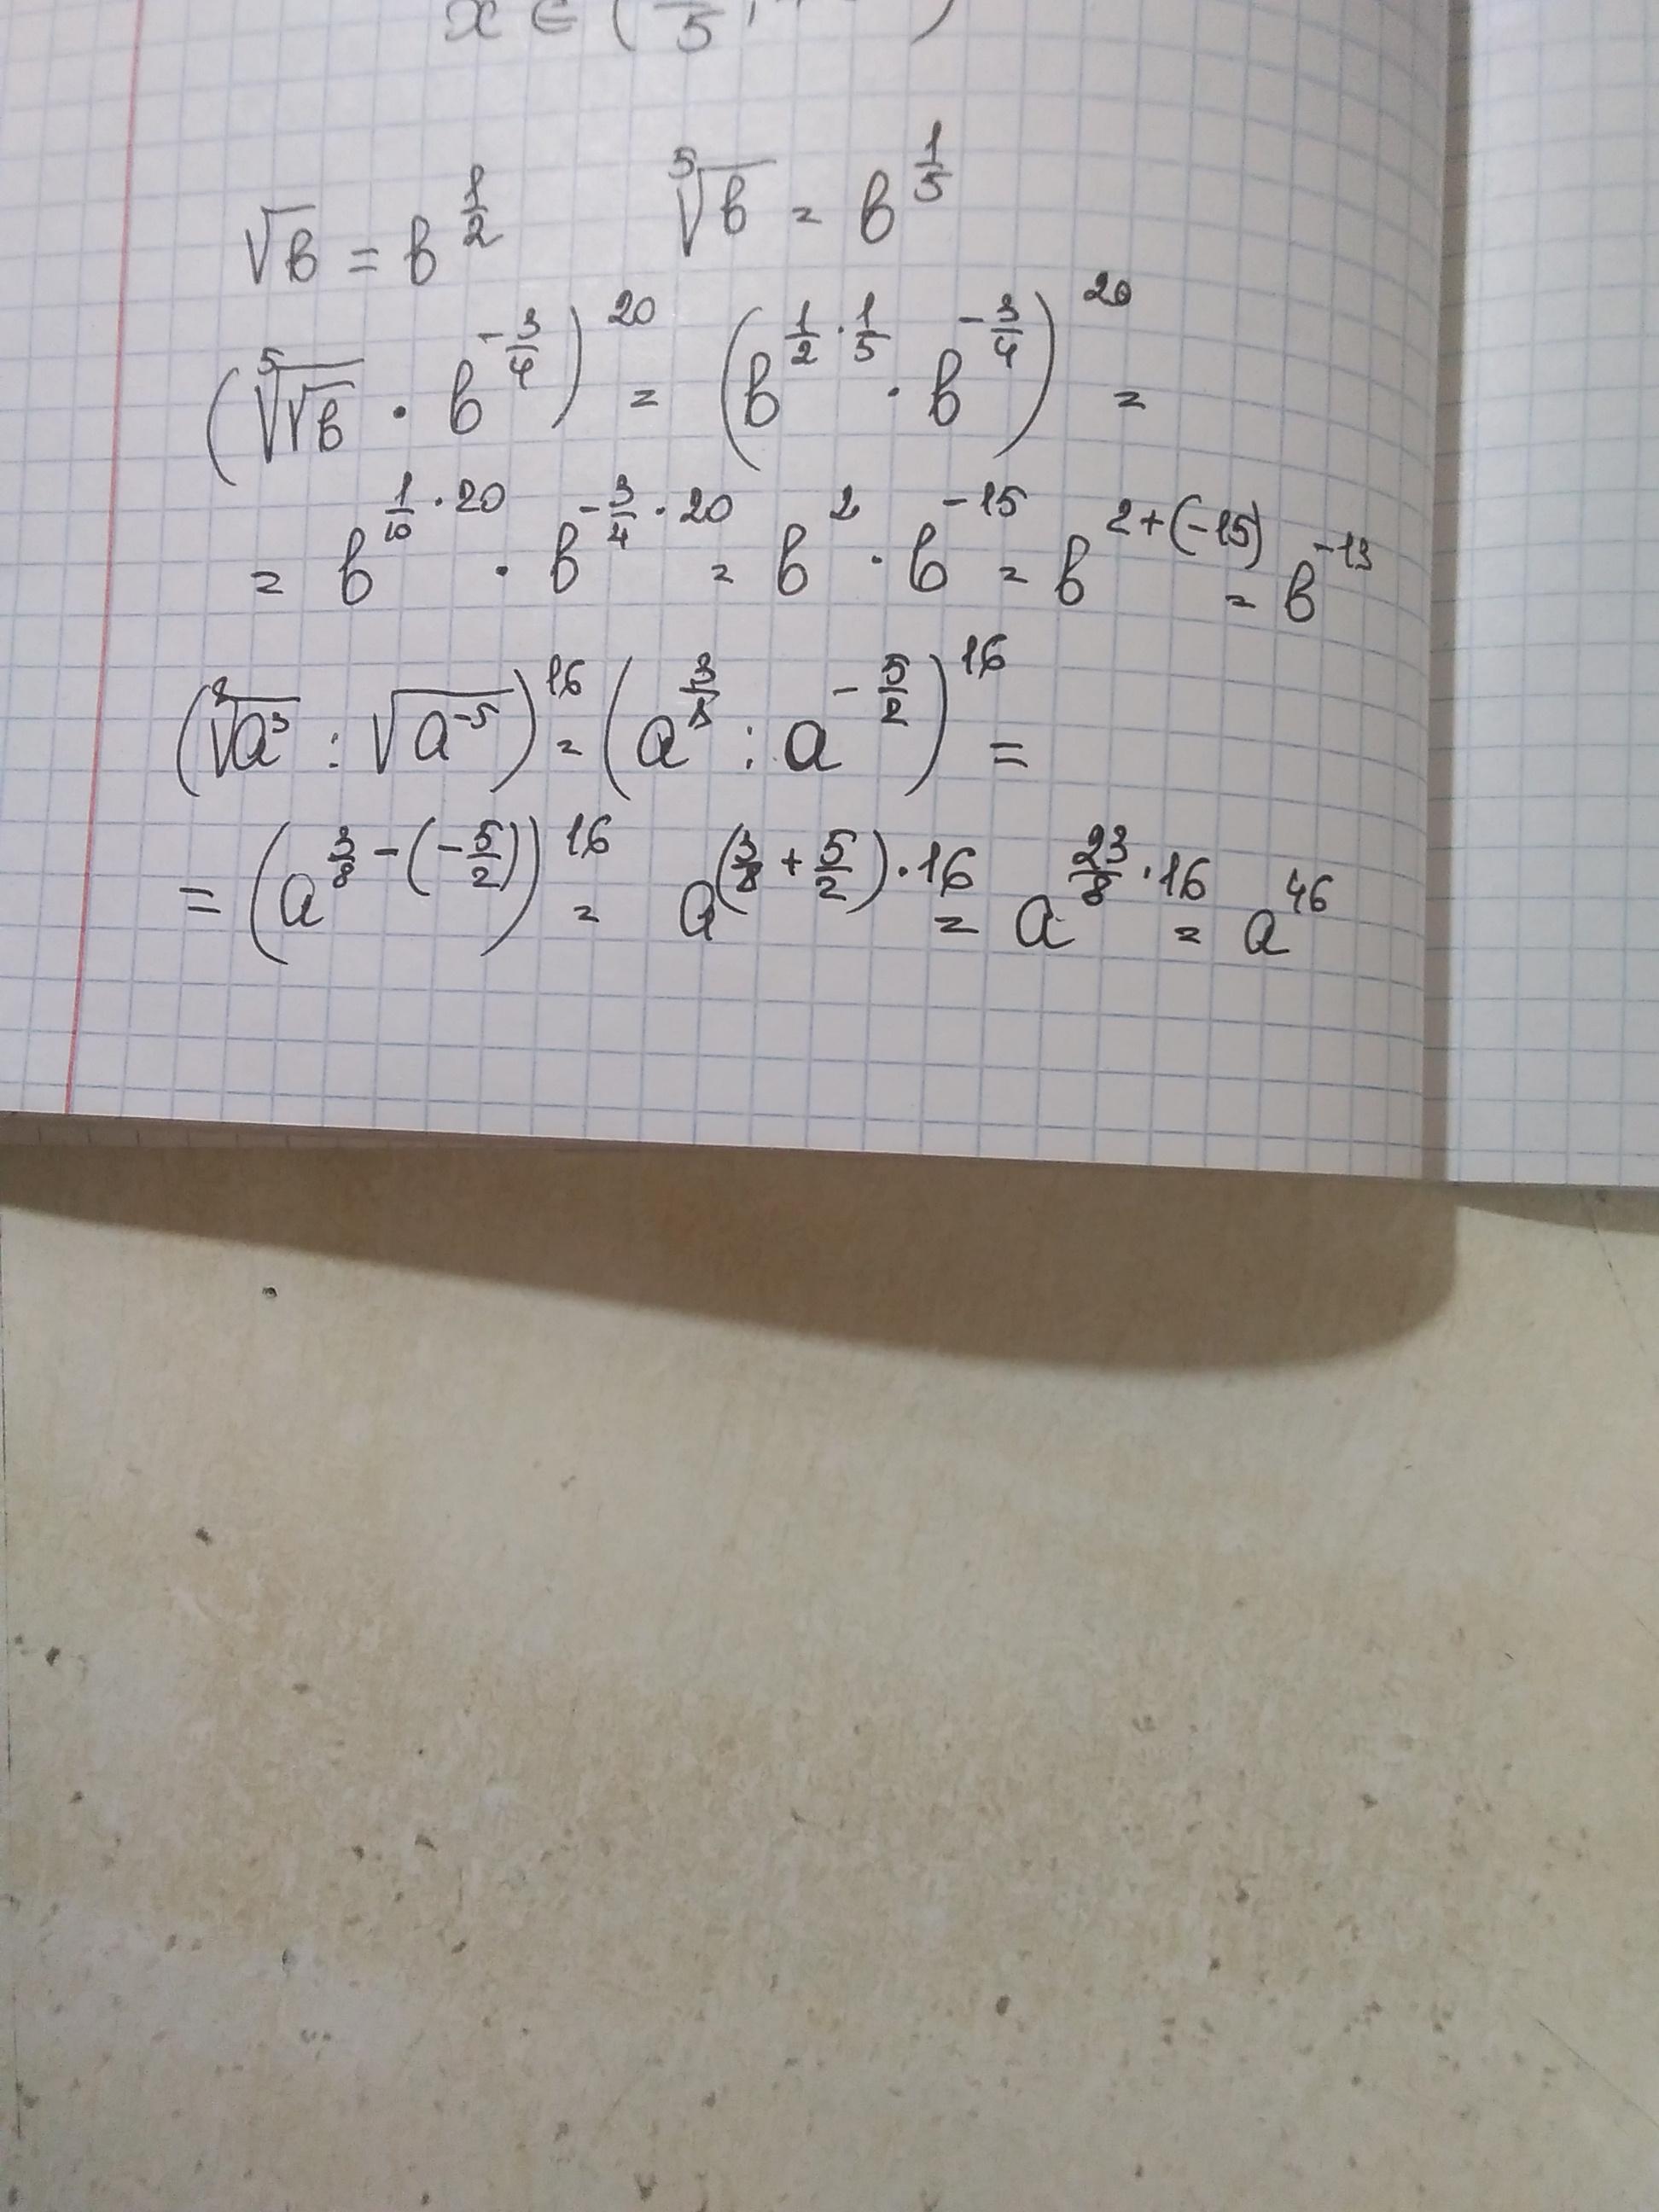 x ∈ ( /5 ; )
√b = b^(1/2)   ⁵√b = b^(1/5)
(⁵√(√b) · b^(-3/4))^20 = (b^(1/2 · 1/5) · b^(-3/4))^20 =
= b^(1/10 · 20) · b^(-3/4 · 20) = b^2 · b^(-15) = b^(2+(-15)) = b^(-13)
(⁸√(a^3) : √(a^(-5)))^16 = (a^(3/8) : a^(-5/2))^16 =
= (a^(3/8 - (-5/2)))^16 = a^((3/8 + 5/2) · 16) = a^(23/8 · 16) = a^46